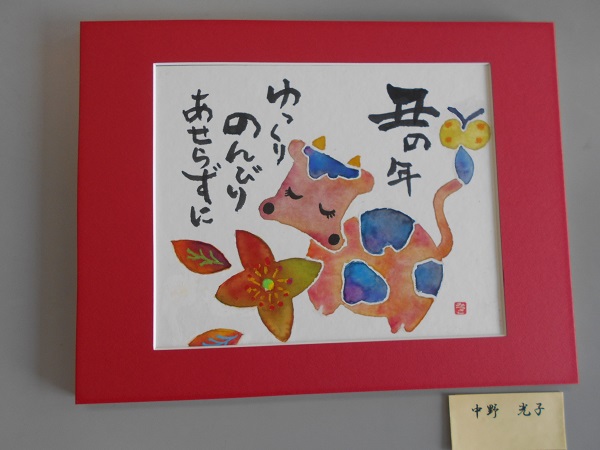 丑の年
ゆっくり
のんびり
あせらずに
中野 光子